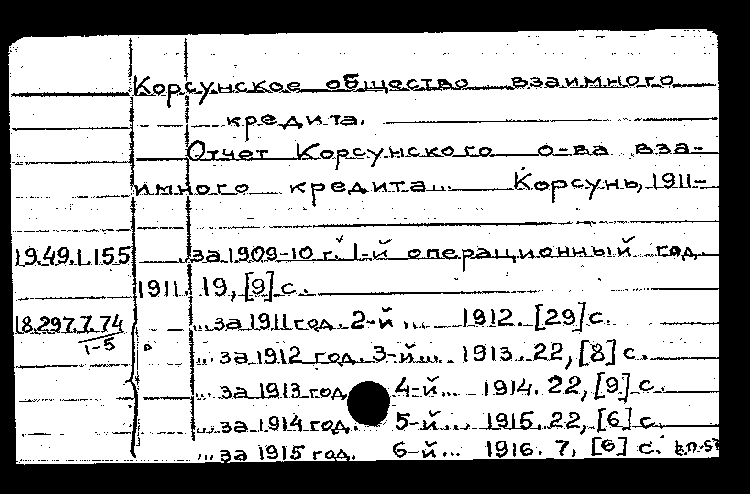 Корсунское общество взаимного
кредита.
Отчет Корсунского о-ва вза-
имного кредита... Корсунь, 1911-
19.49.1.155 за 1909-10 г. 1-й операционный год.
1911. 19, [9] с.
18.297.7.74 ... за 1911 год. 2-й ... 1912. [29] с.
1-5 ... за 1912 год. 3-й... 1913. 22, [8] с.
... за 1913 год. 4-й... 1914. 22, [9] с.
... за 1914 год. 5-й... 1915. 22, [6] с.
... за 1915 год. 6-й... 1916. 7, [6] с.